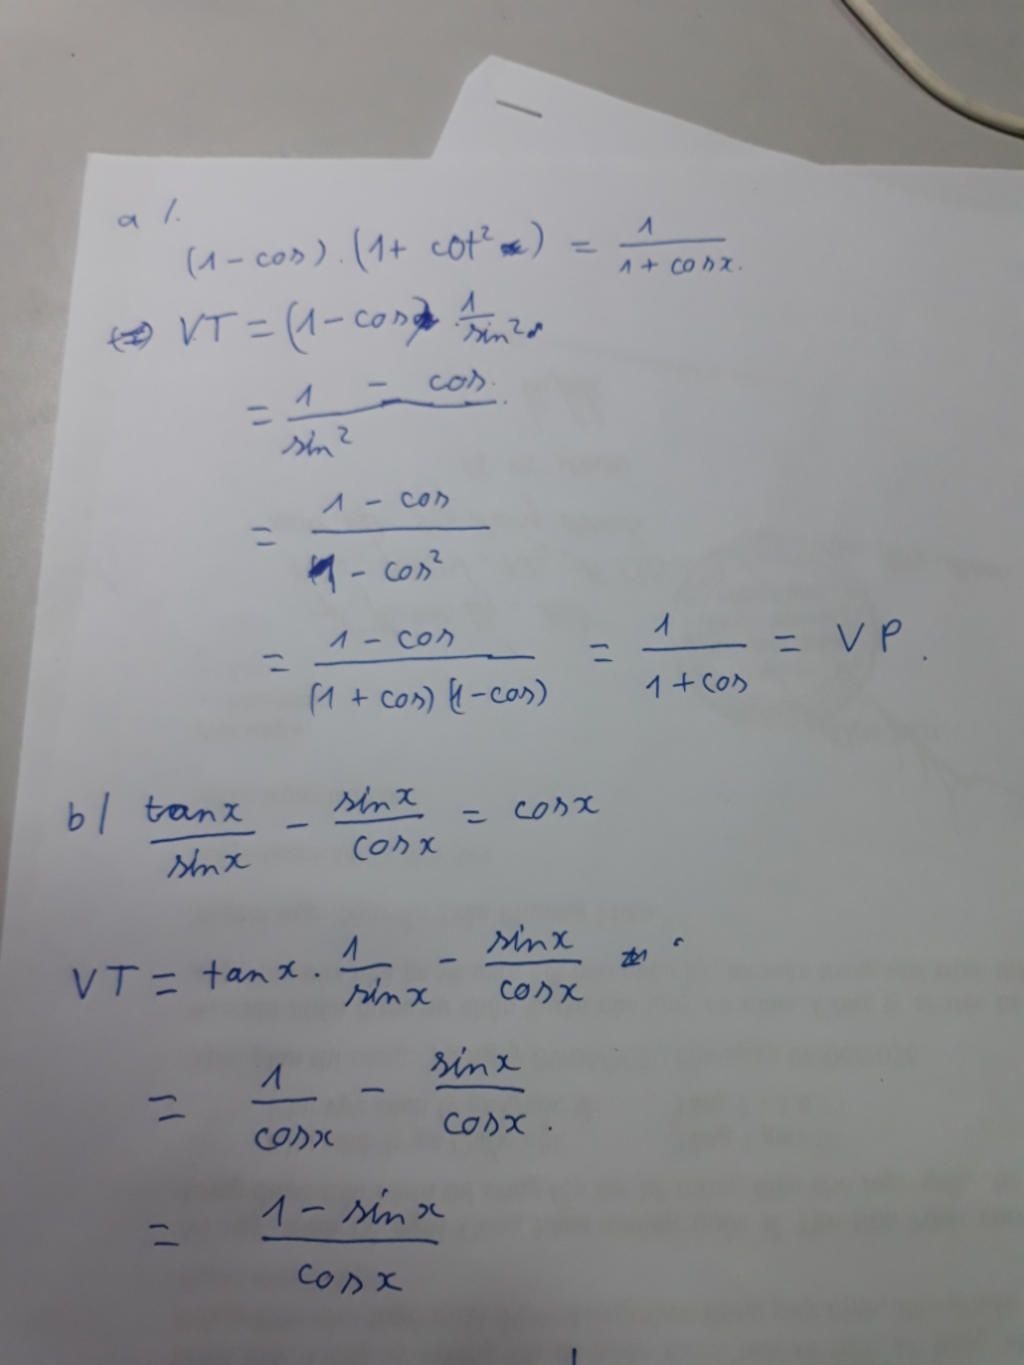 a /.
(1 - cos) . (1 + cot² x) = 1 / (1 + cosx.
(=) VT = (1 - cos) . 1 / sin²
= 1 - cos. / sin²
= 1 - cos / 1 - cos²
= 1 - cos / (1 + cos) (1 - cos) = 1 / 1 + cos = VP.
b / tanx / sinx - sinx / cosx = cosx
VT = tanx . 1 / sinx - sinx / cosx
= 1 / cosx - sinx / cosx.
= 1 - sinx / cosx